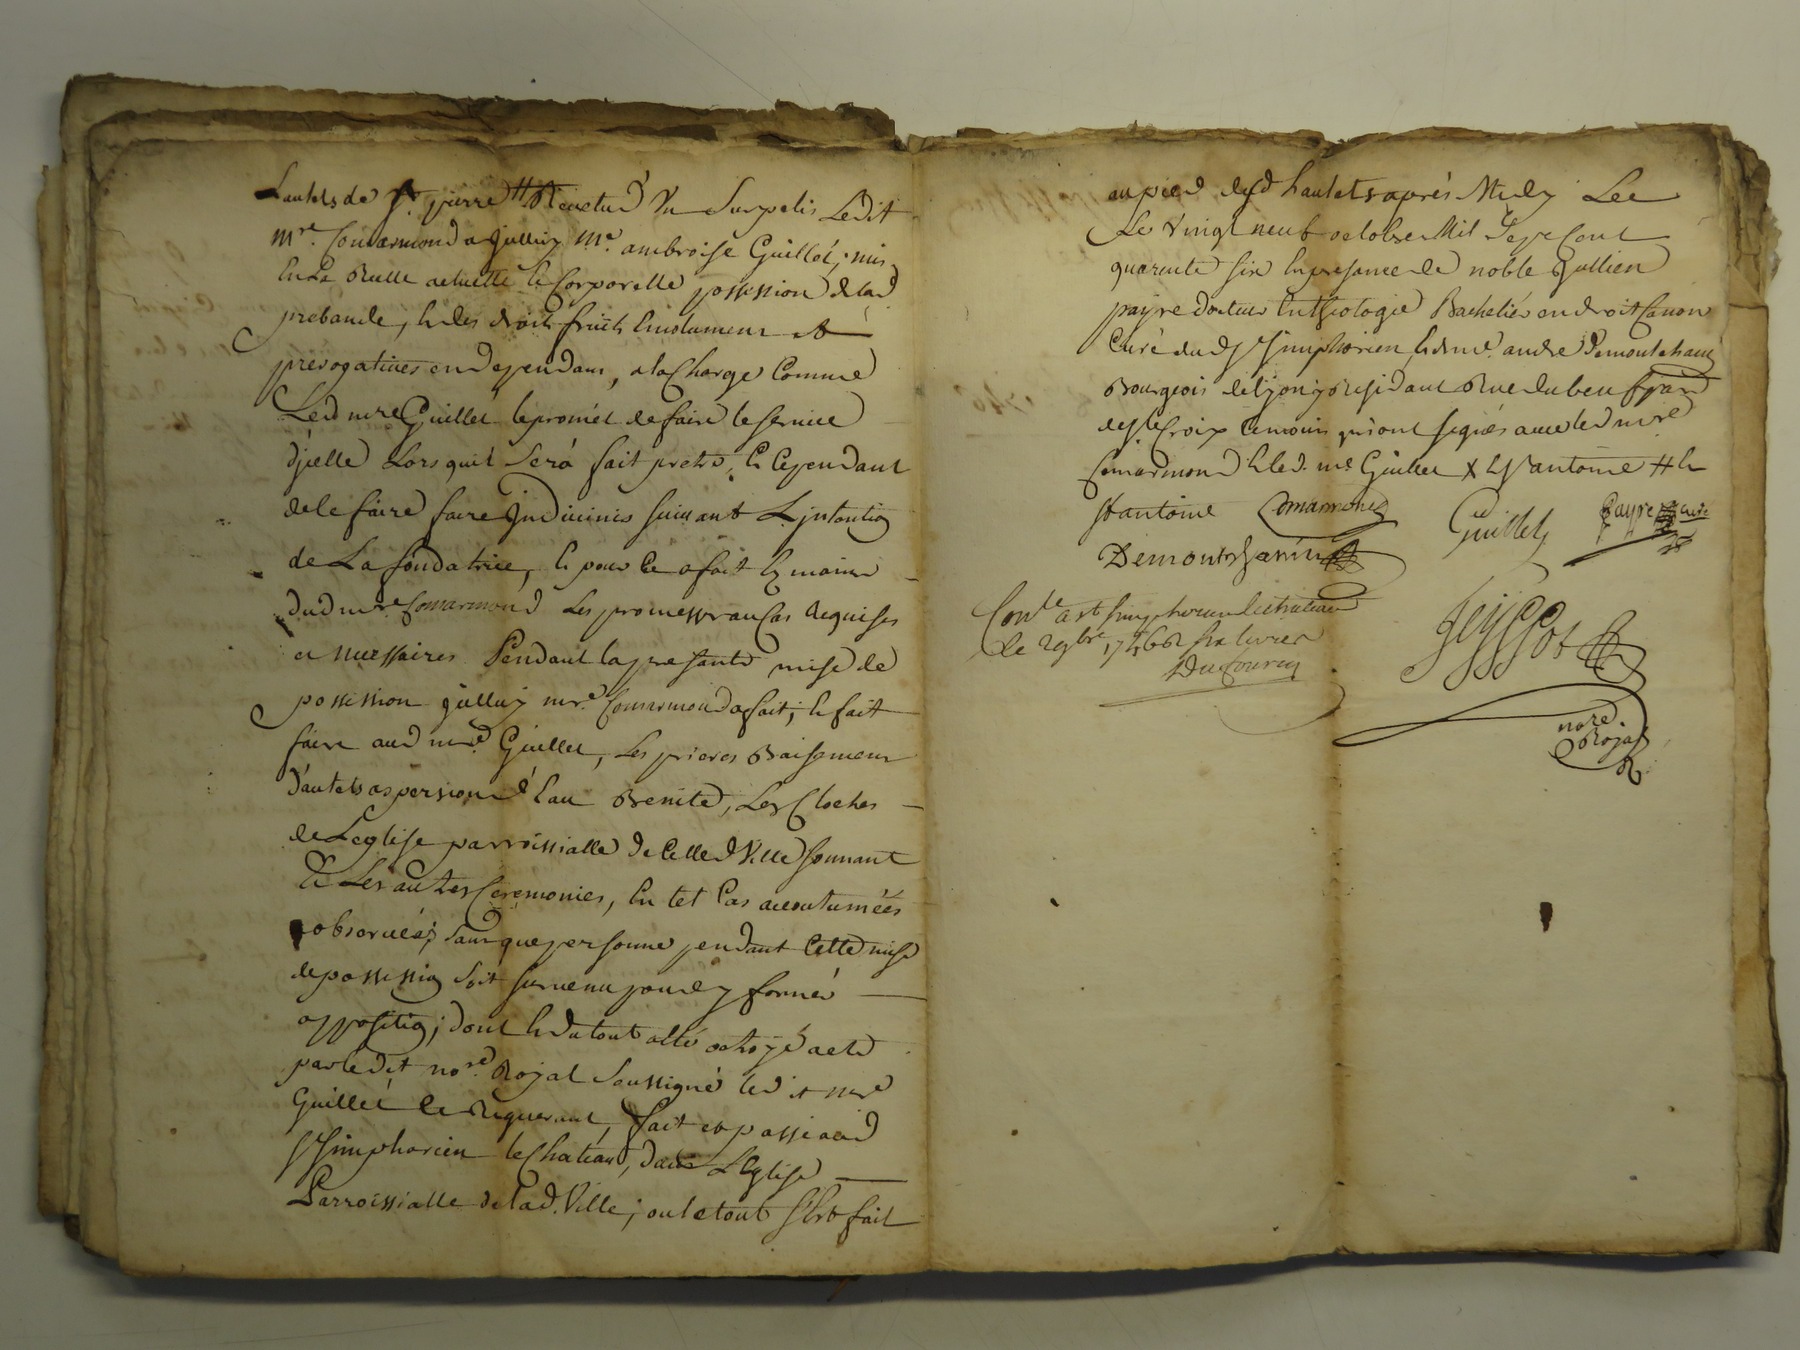 Lautels de St. pierre # Revetud Un Surpelis Ledit
Mre. Comarmond a jcelluy Me. ambroise Guillet, mis
En La Reelle actuelle & Corporelle possession de lad
prebande, & des droits fruits Emolumens &
prerogatives en dependans, a la Charge Comme
Led mre Guillet le promet de faire le service
djcelle Lorsquil sera fait pretre, & Cependant
de le faire faire Jn divinis suivant Ljntention
de La fondatrice, & pour Ce a fait Es mains
dud mre Comarmond Les promesses au Cas Requises
et necessaires Pendant la presante mise de
possession jcelluy mre. Comarmond a fait, & fait
faire aud mre Guillet, Les prieres Baisemens
d'autels aspersion d'Eau Benite, Les Cloches
de Leglise parroissialle de Celled Ville Sonnant
& Les autres Ceremonies, En tel Cas accoutumées
observées, Sans que personne pendant Cette mise
de possession soit survenu pour y former
opposition; dont & du tout a Eté octroyé acte
par ledit nore Royal Soussigné led it mre
Guillet Le Requerant, fait et passé aud
St Simphorien le Chateau, dans LEglise
Parroissialle de lad. Ville; ou le tout s'Est fait
au pied desd hautels aprés Midy Lee
Le Vingt neuf octobre Mil Sept Cent
quarente six En presance de noble Jullien
payre docteur En theologie Bachelier en droit Canon
Curé dud St Simphorien & de mre. andre Demontchanin
Bourgeois de Lyon y Residant Rue du beuf
de Ste Croix temoins qui ont signés avec led mre
Comarmond & led. mre Guillet X & St antoine # &
St antoine Comarmond Guillet Payre curé
Demontchanin
Conle a st simphorien le chateau
le 29bre 1746 Six livres
Ducoureu
Jeyssot
nore
Royal